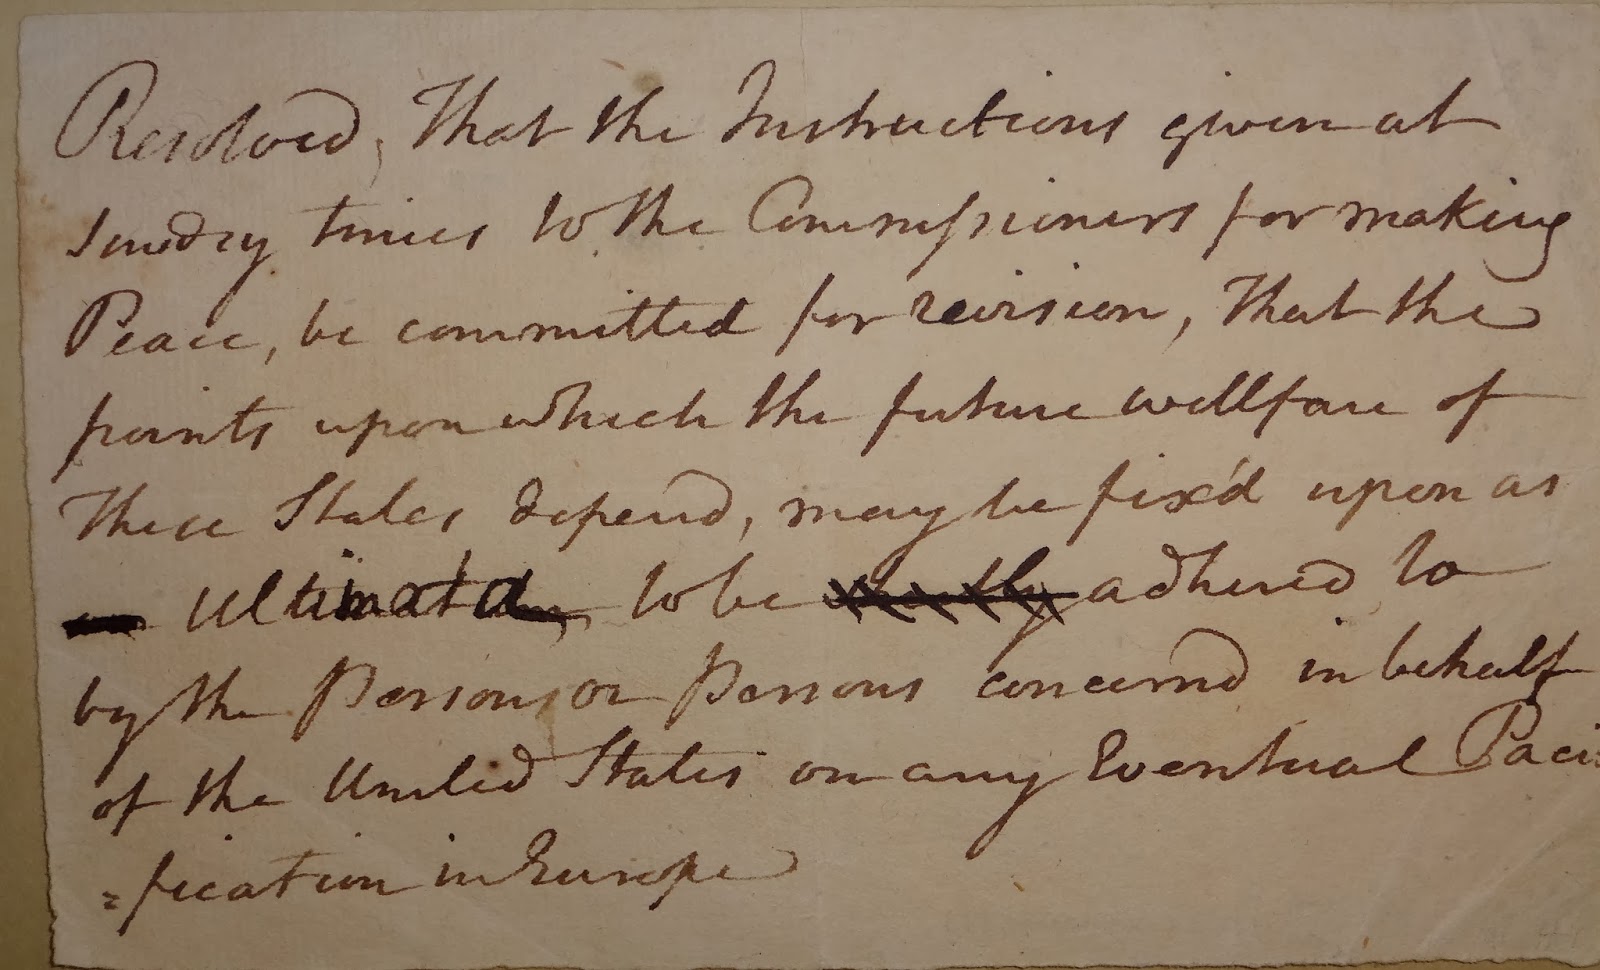 Resolved, That the Instructions given at
sundry times to the Commissioners for making
Peace, be committed for revision, that the
points upon which the future wellfare of
these States depend, may be fix'd upon as
Ultimata, to be adhered to
by the Person, or Persons concernd in behalf
of the United States on any Eventual Paci
=fication in Europe